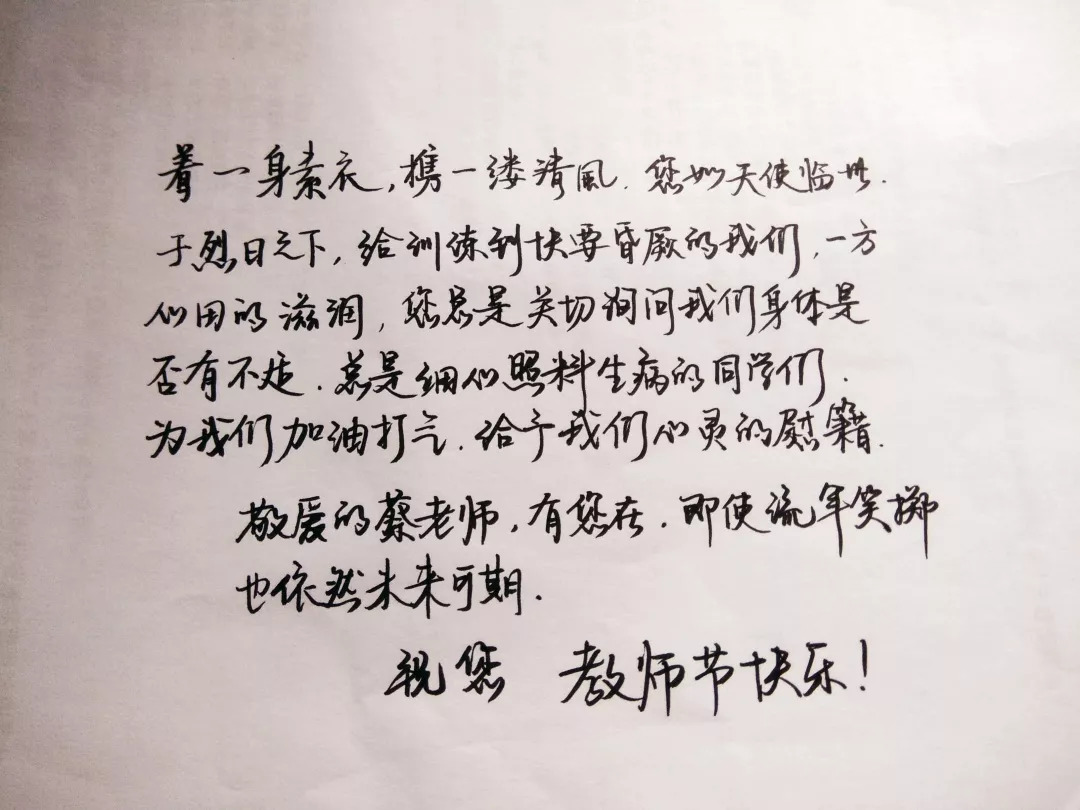 着一身素衣,携一缕清風.您如天使临世.
于烈日之下,给训练到快要昏厥的我们,一方
心田的滋润,您总是关切询问我们身体是
否有不适.总是细心照料生病的同学们.
为我们加油打气.给予我们心灵的慰籍.
敬爱的蔡老师,有您在.即使流年笑掷
也依然未来可期.
祝您 教师节快乐!